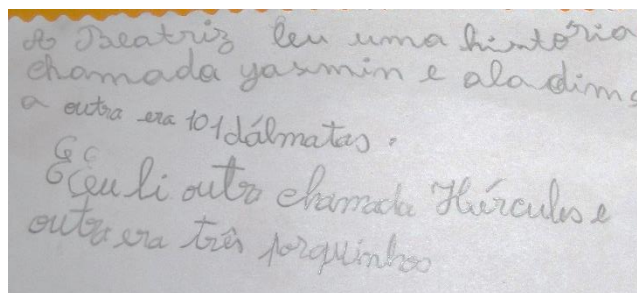 A Beatriz leu uma história
chamada yasmin e aladim e
a outra era 101 dálmatas.
E eu li outra chamada Hércules e
outra era três porquinhos